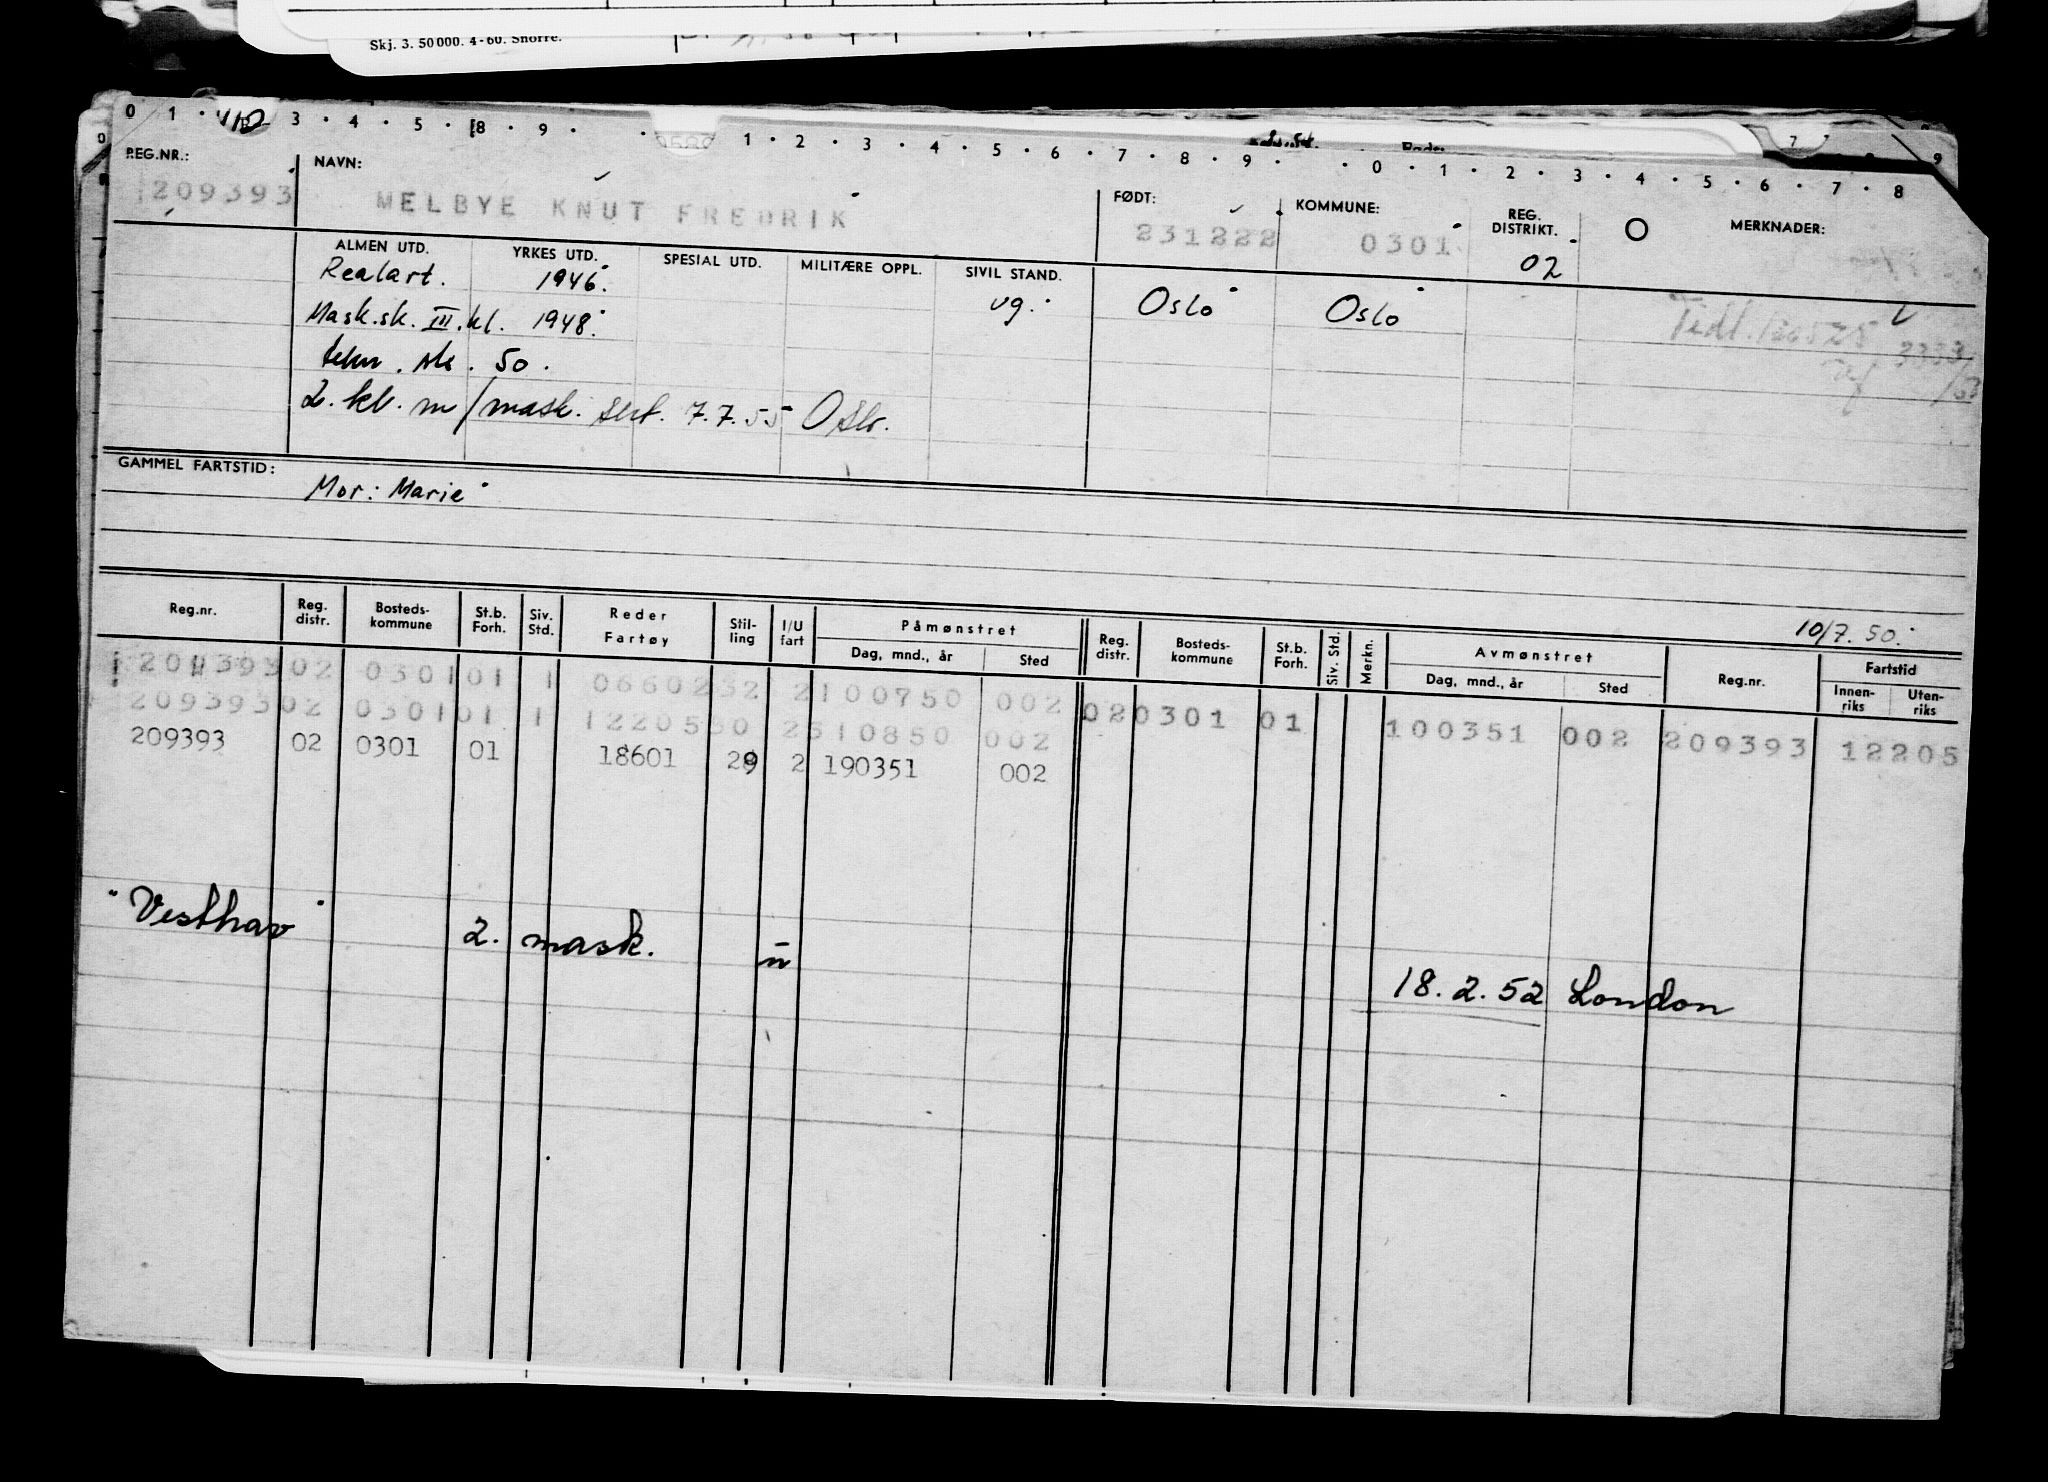 Skj. 3. 50000. 4-60. Snorre.
0 1 · 3 · 4 · 5 · 8 · 9 · · 1 · 2 · 3 · 4 · 5 · 6 · 7 · 8 · 9 · · 0 · 1 · 2 · 3 · 4 · 5 · 6 · 7 · 8
REG.NR.: NAVN: FØDT: KOMMUNE: REG. DISTRIKT. O MERKNADER:
209393 MELBYE KNUT FREDRIK 231222 0301 02
ALMEN UTD. YRKES UTD. SPESIAL UTD. MILITÆRE OPPL. SIVIL STAND.
Realart. 1946. ug. Oslo Oslo
Mask.sk. III. kl. 1948. Tidl. 126525
tekn. 50. 3333
2. kl. m/mask. sert. 7.7.55 Oslo.
GAMMEL FARTSTID:
Mor: Marie
10/7. 50.
Reg.nr. Reg. distr. Bosteds- kommune St.b. Forh. Siv. Std. Reder Fartøy Stil- ling I/U fart Påmønstret Reg. distr. Bosteds- kommune St.b. Forh. Siv. Std. Merkn. Avmønstret Reg.nr. Fartstid
Dag, mnd., år Sted Dag, mnd., år Sted Innen- riks Uten- riks
209393 02 0301 01 1 0660232 2 100750 002
209393 02 0301 01 1 1220530 2 310850 002 02 0301 01 100351 002 209393 12205
209393 02 0301 01 18601 29 2 190351 002
"Vesthav" 2. mask. u 18.2.52 London